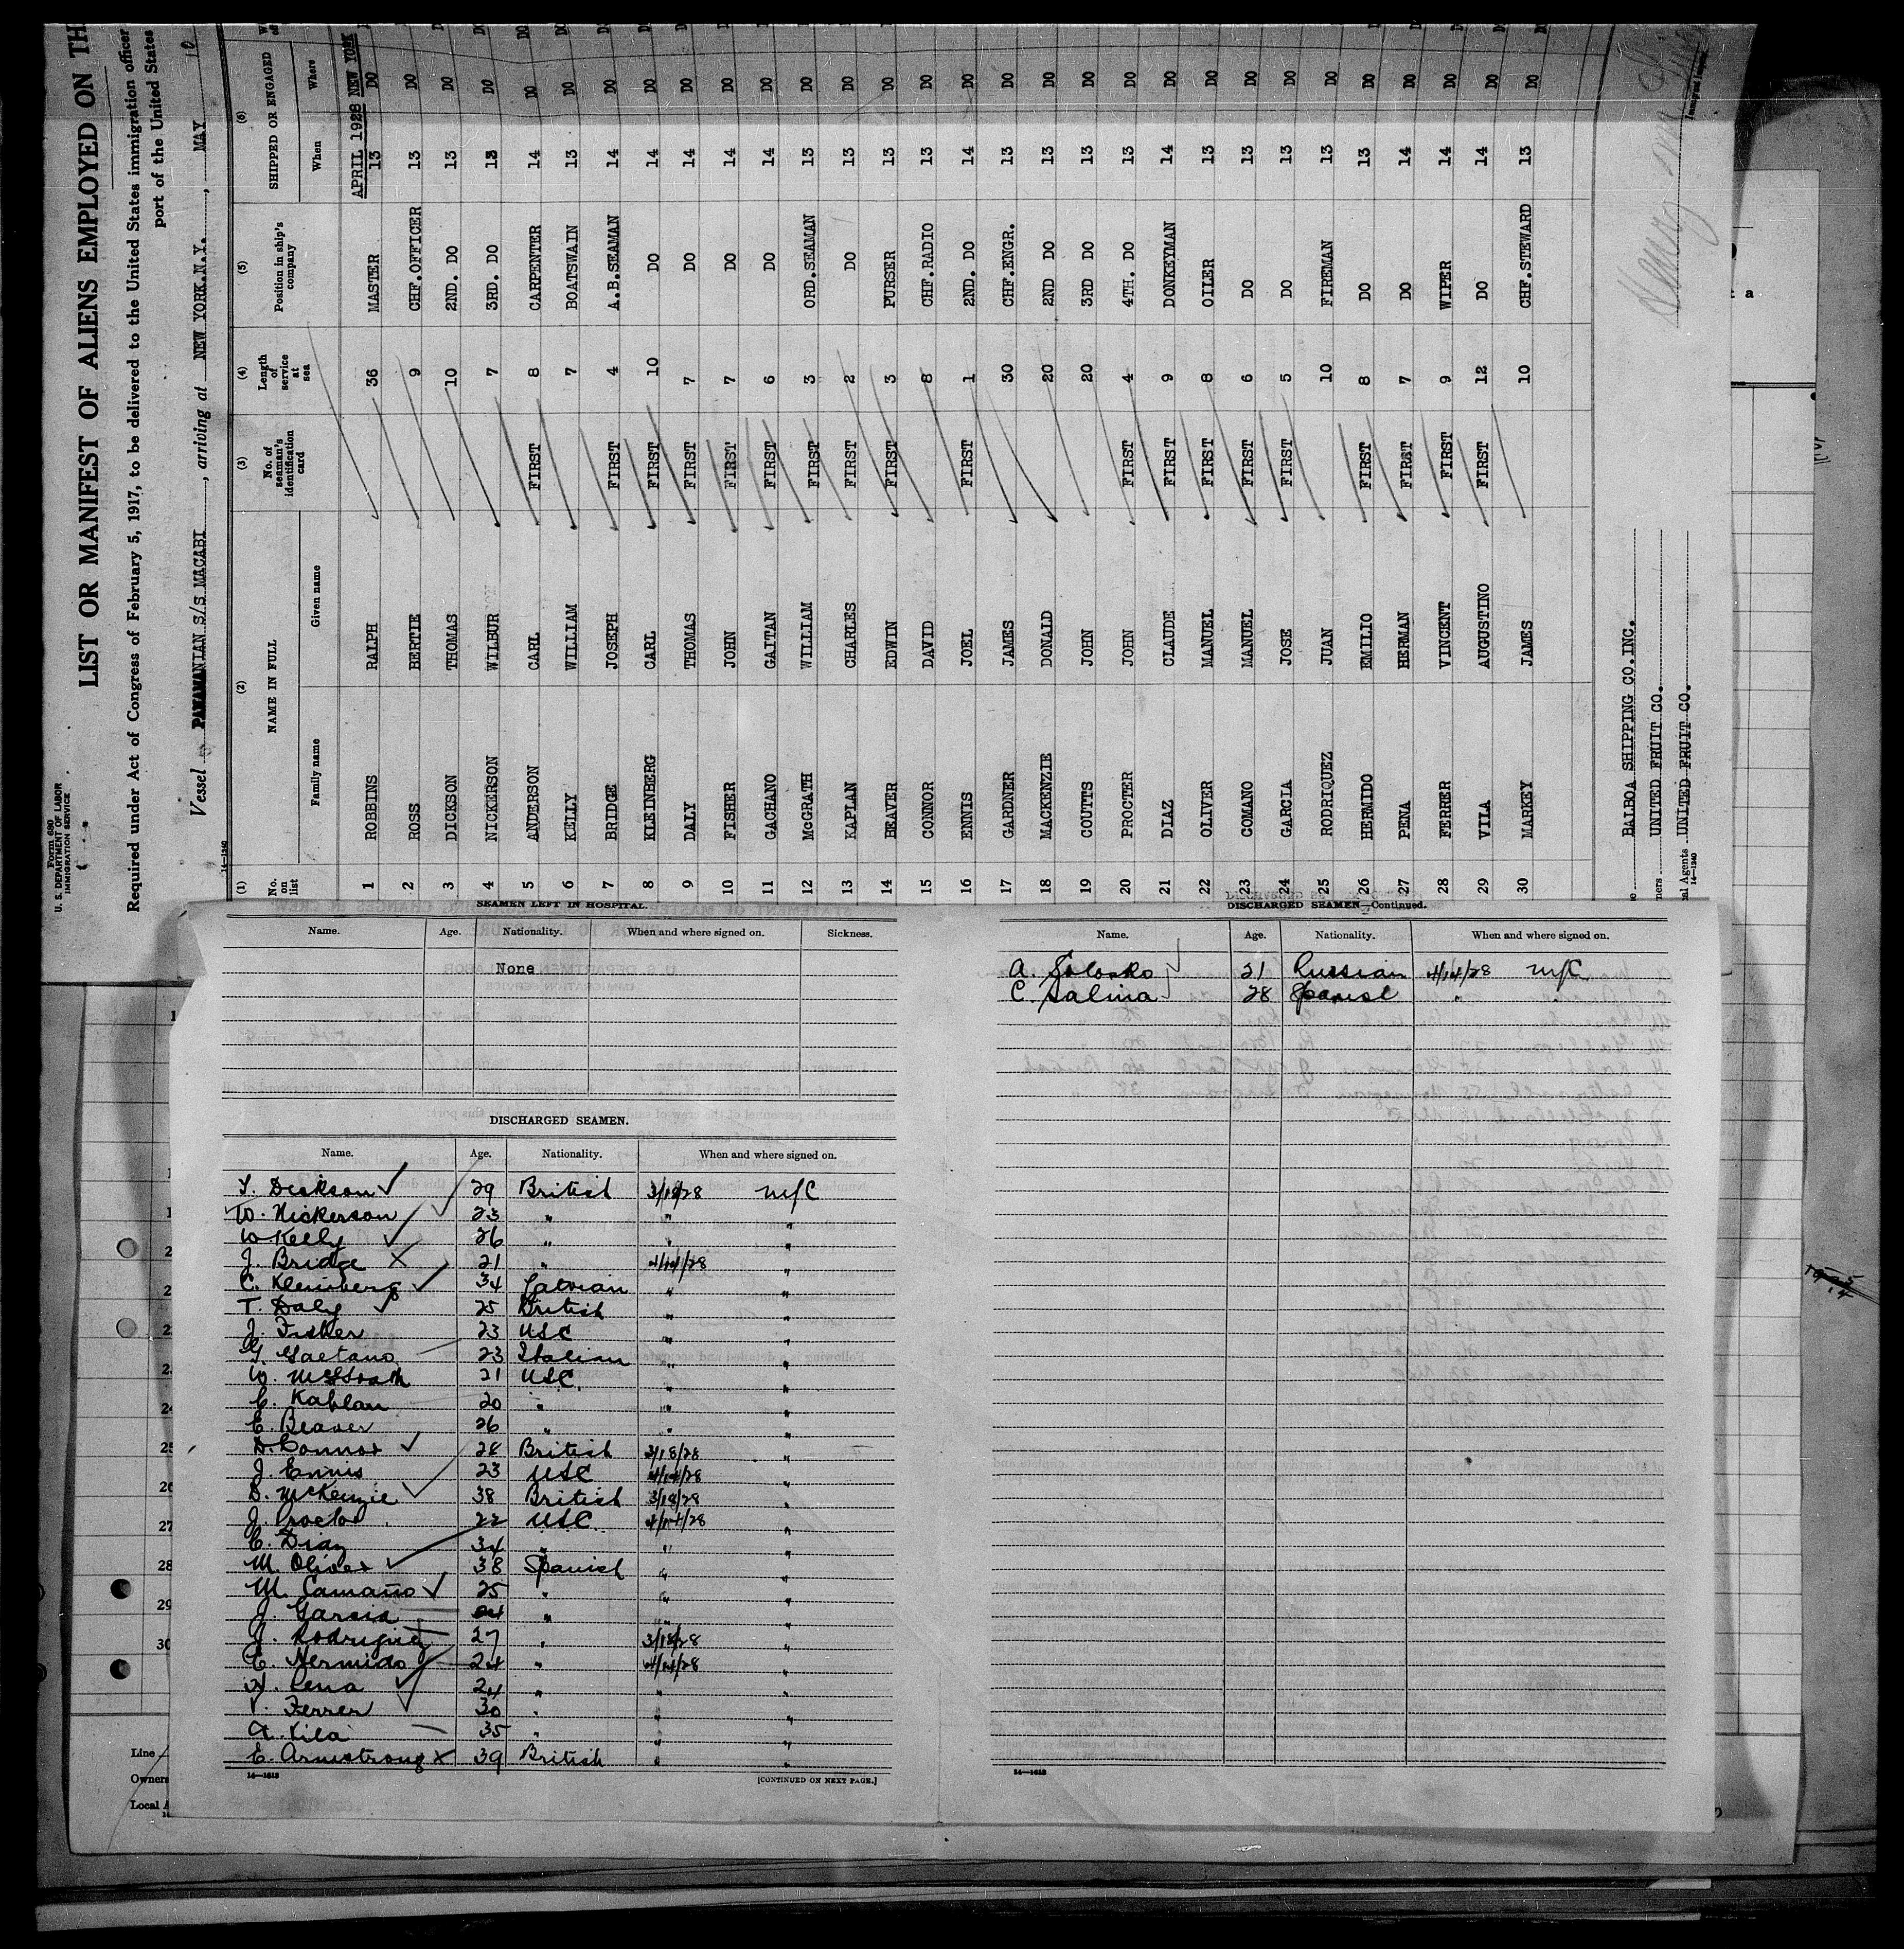 Form 680
U. S. DEPARTMENT OF LABOR
IMMIGRATION SERVICE
LIST OR MANIFEST OF ALIENS EMPLOYED ON TH
Required under Act of Congress of February 5, 1917, to be delivered to the United States immigration officer
port of the United States
Vessel PANAMANIAN S/S MACABI, arriving at NEW YORK.N.Y., MAY
14—1240
(1) (2) (3) (4) (5) (6)
No. on list NAME IN FULL No. of seaman's identification card Length of service at sea Position in ship's company SHIPPED OR ENGAGED
Family name Given name When Where
APRIL 1928 NEW YORK
1 ROBBINS RALPH 36 MASTER 13 DO
2 ROSS BERTIE 9 CHF.OFFICER 13 DO
3 DICKSON THOMAS 10 2ND. DO 13 DO
4 NICKERSON WILBUR 7 3RD. DO 13 DO
5 ANDERSON CARL FIRST 8 CARPENTER 14 DO
6 KELLY WILLIAM 7 BOATSWAIN 13 DO
7 BRIDGE JOSEPH FIRST 4 A.B.SEAMAN 14 DO
8 KLEINBERG CARL FIRST 10 DO 14 DO
9 DALY THOMAS FIRST 7 DO 14 DO
10 FISHER JOHN FIRST 7 DO 14 DO
11 GACHANO GAITAN FIRST 6 DO 14 DO
12 McGRATH WILLIAM FIRST 3 ORD.SEAMAN 13 DO
13 KAPLAN CHARLES FIRST 2 DO 13 DO
14 BEAVER EDWIN FIRST 3 PURSER 13 DO
15 CONNOR DAVID 8 CHF.RADIO 13 DO
16 ENNIS JOEL FIRST 1 2ND. DO 14 DO
17 GARDNER JAMES 30 CHF.ENGR. 13 DO
18 MACKENZIE DONALD 20 2ND DO 13 DO
19 COUTTS JOHN 20 3RD DO 13 DO
20 PROCTER JOHN FIRST 4 4TH. DO 13 DO
21 DIAZ CLAUDE FIRST 9 DONKEYMAN 14 DO
22 OLIVER MANUEL FIRST 8 OILER 13 DO
23 COMANO MANUEL FIRST 6 DO 13 DO
24 GARCIA JOSE FIRST 5 DO 13 DO
25 RODRIQUEZ JUAN 10 FIREMAN 13 DO
26 HERMIDO EMILIO FIRST 8 DO 13 DO
27 PENA HERMAN FIRST 7 DO 14 DO
28 FERRER VINCENT FIRST 9 WIPER 14 DO
29 VILA AUGUSTINO FIRST 12 DO 14 DO
30 MARKEY JAMES 10 CHF.STEWARD 13 DO
BALBOA SHIPPING CO.INC.
UNITED FRUIT CO.
al Agents UNITED FRUIT CO.
14—1240
SEAMEN LEFT IN HOSPITAL.
Name. Age. Nationality. When and where signed on. Sickness.
None
DISCHARGED SEAMEN.
Name. Age. Nationality. When and where signed on.
T. Dickson 29 British 3/18/28 N/C
W. Nickerson 23 " " "
W Kelly 26 " " "
J. Bridge 21 " 4/14/28 "
C. Kleinberg 34 Latvian " "
T. Daly 25 British " "
J. Fisher 23 USC " "
G. Gaetano 23 Italian " "
W. McGrath 21 USC " "
C. Kaplan 20 " " "
E. Beaver 26 " " "
D. Connor 28 British 3/18/28 "
J. Ennis 23 USC 4/14/28 "
D. McKenzie 38 British 3/18/28 "
J. Proctor 22 USC 4/14/28 "
C. Diaz 34 " " "
M. Oliver 38 Spanish " "
M. Camaño 25 " " "
J. Garcia 24 " " "
J. Rodriguez 27 " 3/18/28 "
E. Hermido 24 " 4/14/28 "
H. Pena 24 " " "
V. Ferrer 30 " " "
A. Vila 35 " " "
E. Armstrong 39 British " "
14—1613
[CONTINUED ON NEXT PAGE.]
DISCHARGED SEAMEN—Continued.
Name. Age. Nationality. When and where signed on.
A. Solosko 21 Russian 4/14/28 N/C
C. Salina 28 Spanish " "
14—1613
25
26
27
28
29
30
Line
Owners
Local A